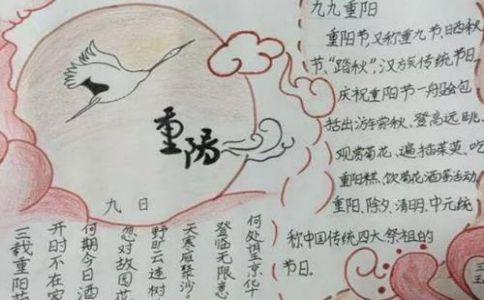 重陽
九日
三载重阳
开时不在家
何期今日酒
忽对故园
野旷云连树
天寒雁聚沙
登临无限意
何处望京华
九九重阳
重阳节,又称重九节、晒秋
节、“踏秋”,汉族传统节日
庆祝重阳节一般会包
括出游赏秋、登高远眺、
观赏菊花、遍插茱萸、吃
重阳糕、饮菊花酒等活动
重阳、除夕、清明、中元统
称中国传统四大祭祖的
节日.